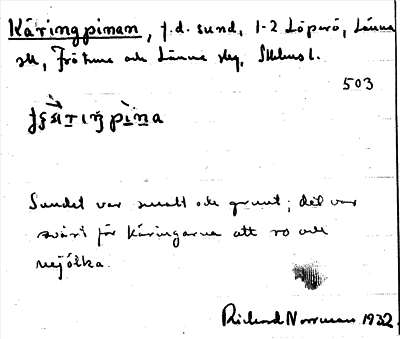 Käringpinan, f.d. sund, 1-2 Löparö, Länna
sk, Frötuna och Länna skg, Sthlms l.
503
Sundet var smalt och grunt; det var
svårt för käringarna att ro och
Richard Norrman 1932.